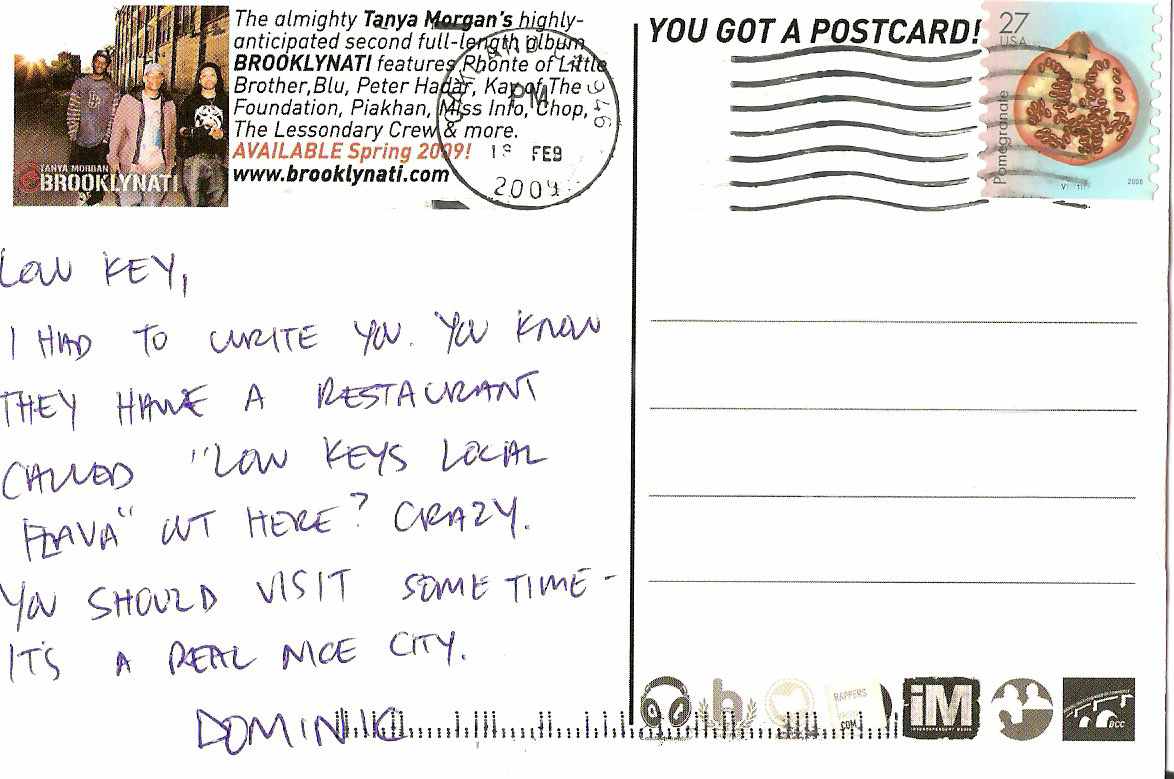 The almighty Tanya Morgan's highly-
anticipated second full-length album
BROOKLYNATI features Phonte of Little
Brother,Blu, Peter Hadar, Kay of The
Foundation, Piakhan, Miss Info, Chop,
The Lessondary Crew & more.
AVAILABLE Spring 2009!
www.brooklynati.com
TANYA MORGAN
BROOKLYNATI
946
PM
18 FEB
2009
YOU GOT A POSTCARD!
27
USA
Pomegranate
2008
LOW KEY,
I HAD TO WRITE YOU. YOU KNOW
THEY HAVE A RESTAURANT
CALLED "LOW KEYS LOCAL
FLAVA" OUT HERE? CRAZY.
YOU SHOULD VISIT SOME TIME -
IT'S A REAL NICE CITY.
DOMINIC
RAPPERS
.COM
iM
INTERDEPENDENT MEDIA
BCC